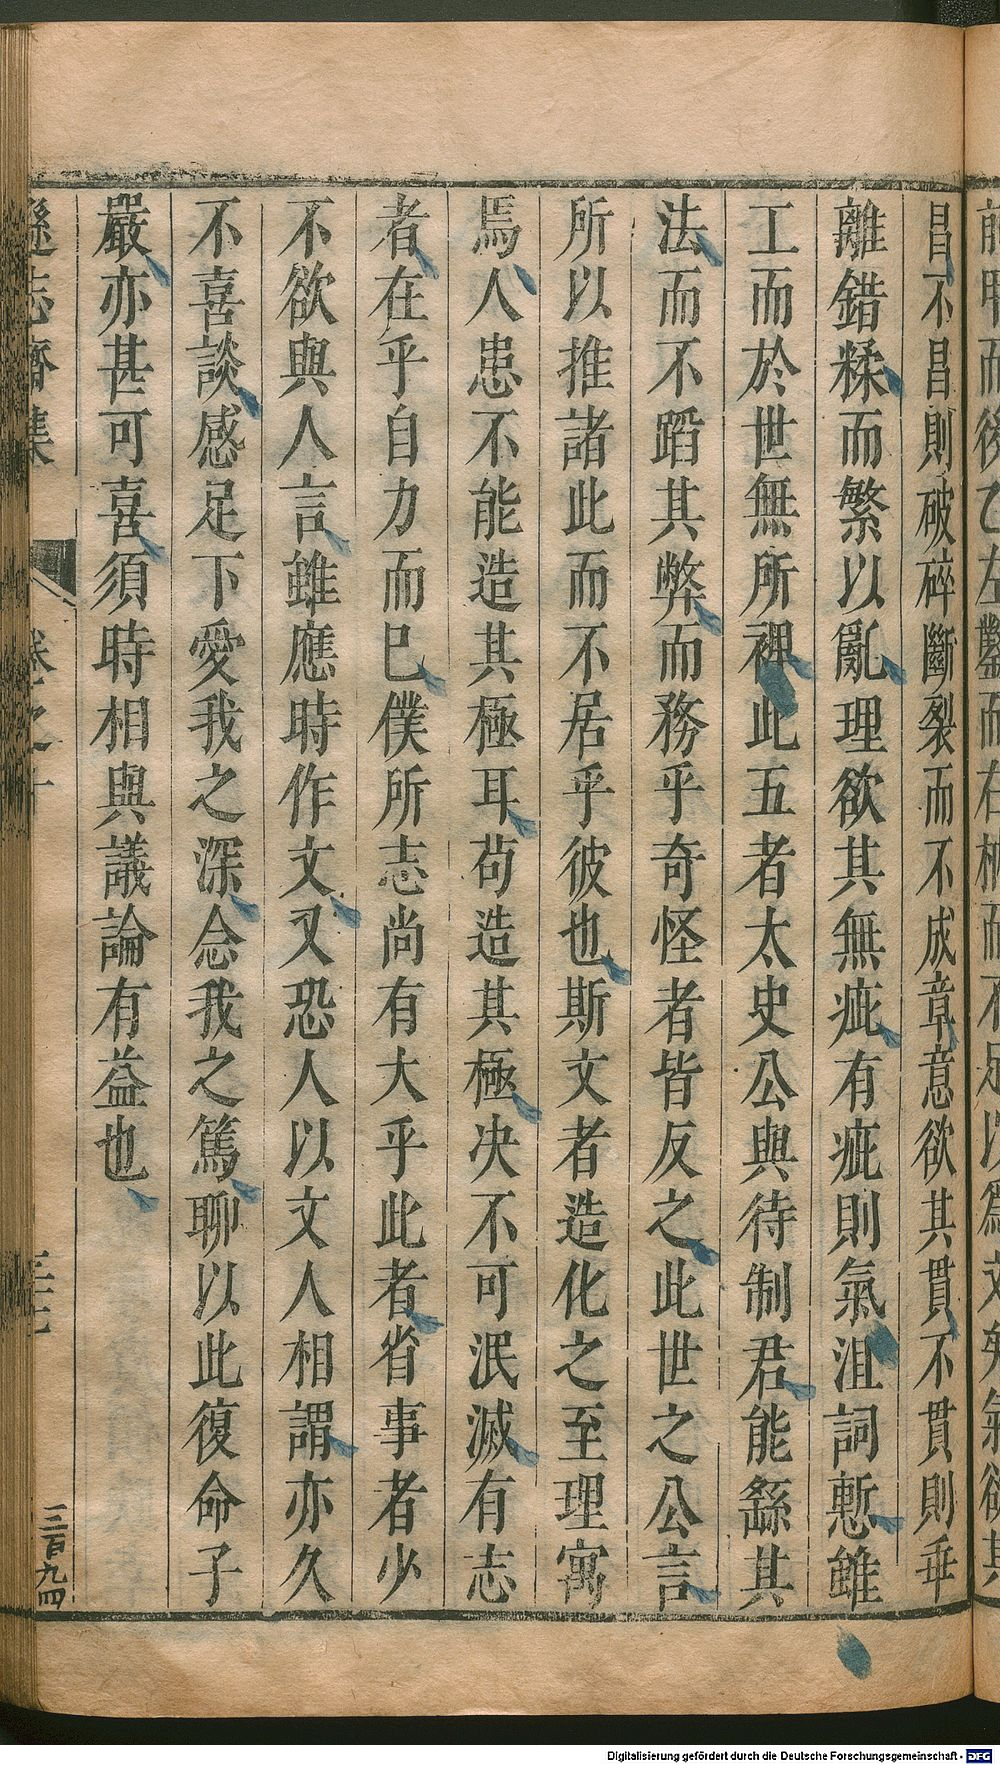 前甲而後乙左鑿而右枘而不足以爲文矣氣欲其
昌不昌則破碎斷裂而不成章意欲其貫不貫則乖
離錯糅而繁以亂理欲其無疵有疵則氣沮詞慙雖
工而於世無所裨此五者太史公與待制君能繇其
法而不蹈其弊而務乎奇怪者皆反之此世之公言
所以推諸此而不居乎彼也斯文者造化之至理寓
焉人患不能造其極耳苟造其極决不可泯滅有志
者在乎自力而已僕所志尚有大乎此者省事者少
不欲與人言雖應時作文又恐人以文人相謂亦久
不喜談感足下愛我之深念我之篤聊以此復命子
嚴亦甚可喜須時相與議論有益也
遜志齋集 卷之十 三百九四
Digitalisierung gefördert durch die Deutsche Forschungsgemeinschaft - DFG